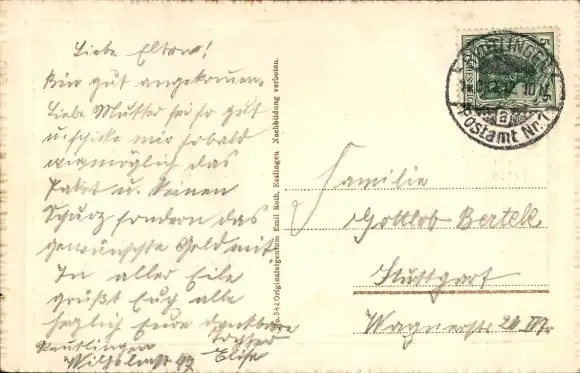 Liebe Eltern!
Bin gut angekommen.
Liebe Mutter sei so gut
u. schicke mir sobald
wie möglich das
Paket u. keinen
Schurz sondern das
gewünschte Geld mit
In aller Eile
grüßt Euch alle
herzlich Eure dankbare
Tochter
Elise
Reutlingen
No. 542 Originaleigentum Emil Roth, Esslingen Nachbildung verboten.
Postamt Nr. 1
Familie
Gottlob Bertele
Stuttgart
Wagnerstr. 20